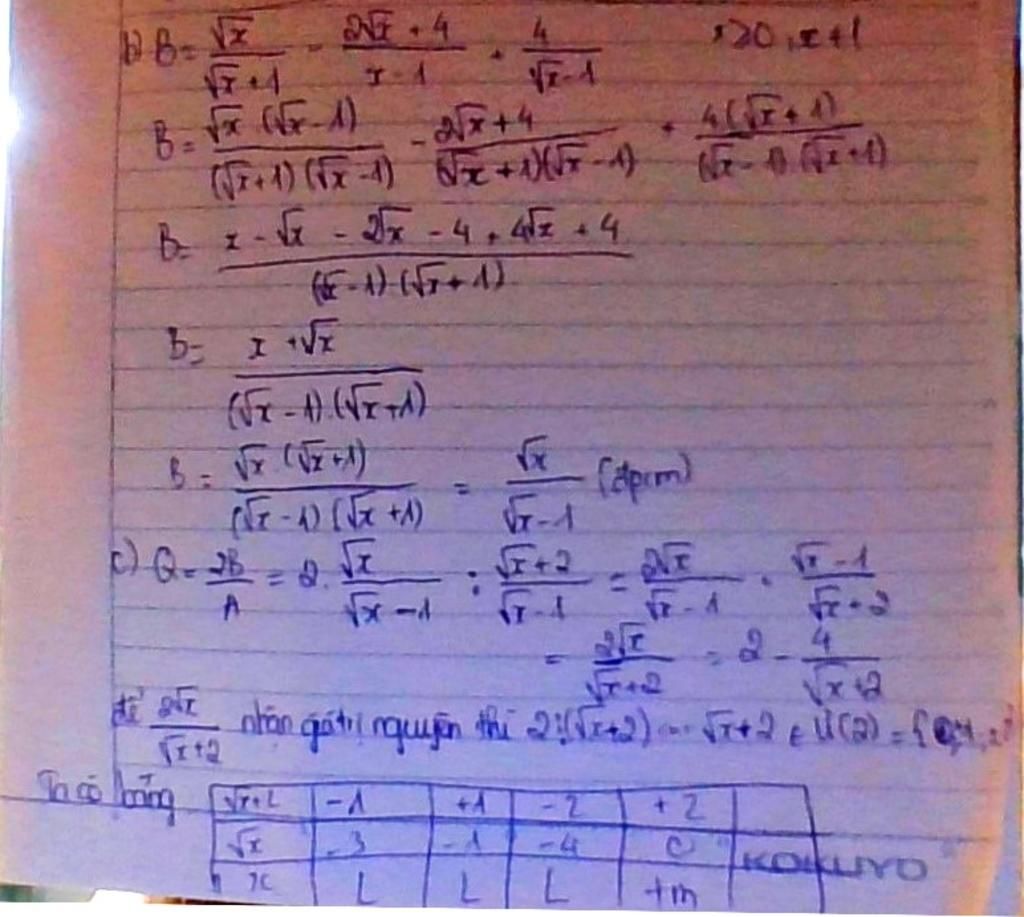 b) B = √x / (√x + 1) - (2√x + 4) / (x - 1) + 4 / (√x - 1) x≥0, x≠1
B = √x (√x - 1) / (√x+1) (√x - 1) - (2√x + 4) / (√x + 1)(√x - 1) + 4(√x + 1) / (√x - 1).(√x+1)
B = (x - √x - 2√x - 4 + 4√x + 4) / (√x - 1).(√x + 1)
B = (x + √x) / (√x - 1).(√x+1)
B = √x (√x+1) / (√x - 1) (√x + 1) = √x / (√x - 1) (đpcm)
c) Q = 2B / A = 2. √x / (√x - 1) : (√x + 2) / (√x - 1) = 2√x / (√x - 1) . (√x - 1) / (√x + 2)
= 2√x / (√x+2) = 2 - 4 / (√x+2)
để 2√x / (√x+2) nhận giá trị nguyên thì 2⋮(√x+2) √x+2 ∈ Ư(2) = {
Ta có bảng √x+2 -1 +1 -2 +2
√x -3 -1 -4 0 KOKUYO
x L L L tm